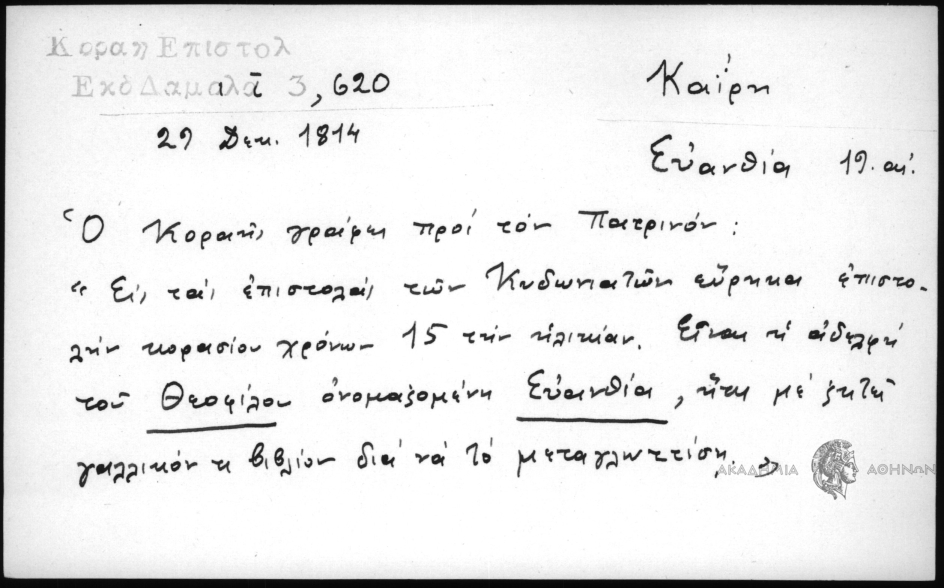 Κοραη Επιστολ
Εκδ Δαμαλᾶ 3, 620
29 Δεκ. 1814
Καΐρη
Εὐανθία 19. αἰ.
Ὁ Κοραῆς γράφει πρὸς τὸν Πατρινόν:
"Εἰς τὰς ἐπιστολὰς τῶν Κυδωνιατῶν εὕρηκα ἐπιστο-
λὴν κορασίου χρόνων 15 τὴν ἡλικίαν. Εἶναι ἡ ἀδελφὴ
τοῦ Θεοφίλου ὀνομαζομένη Εὐανθία, ἥτις μὲ ζητεῖ
γαλλικόν τι βιβλίον διὰ νὰ τὸ μεταγλωττίσῃ."
ΑΚΑΔΗΜΙΑ ΑΘΗΝΩΝ